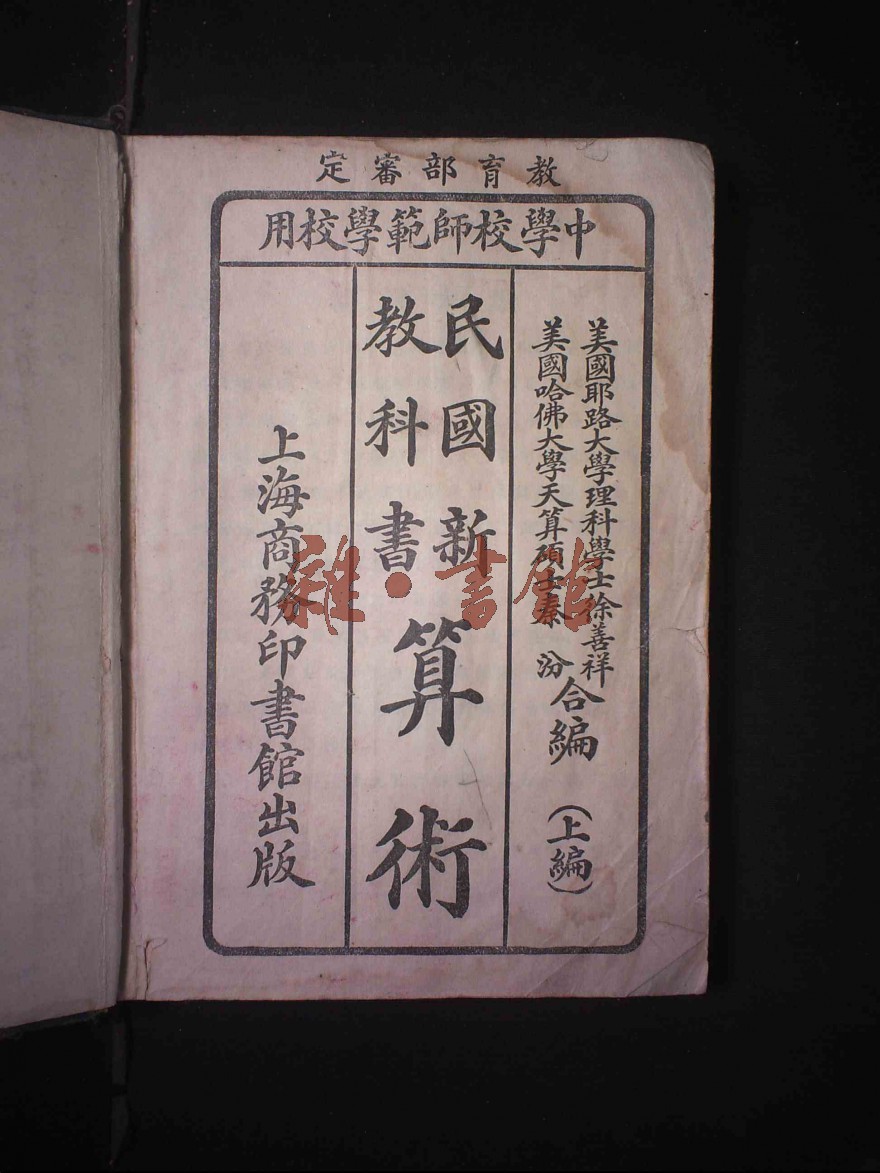 教育部審定
中學校師範學校用
美國耶路大學理科學士徐善祥
美國哈佛大學天算碩士秦汾
合編
(上編)
民國新
教科書
算術
上海商務印書館出版
雜·書館